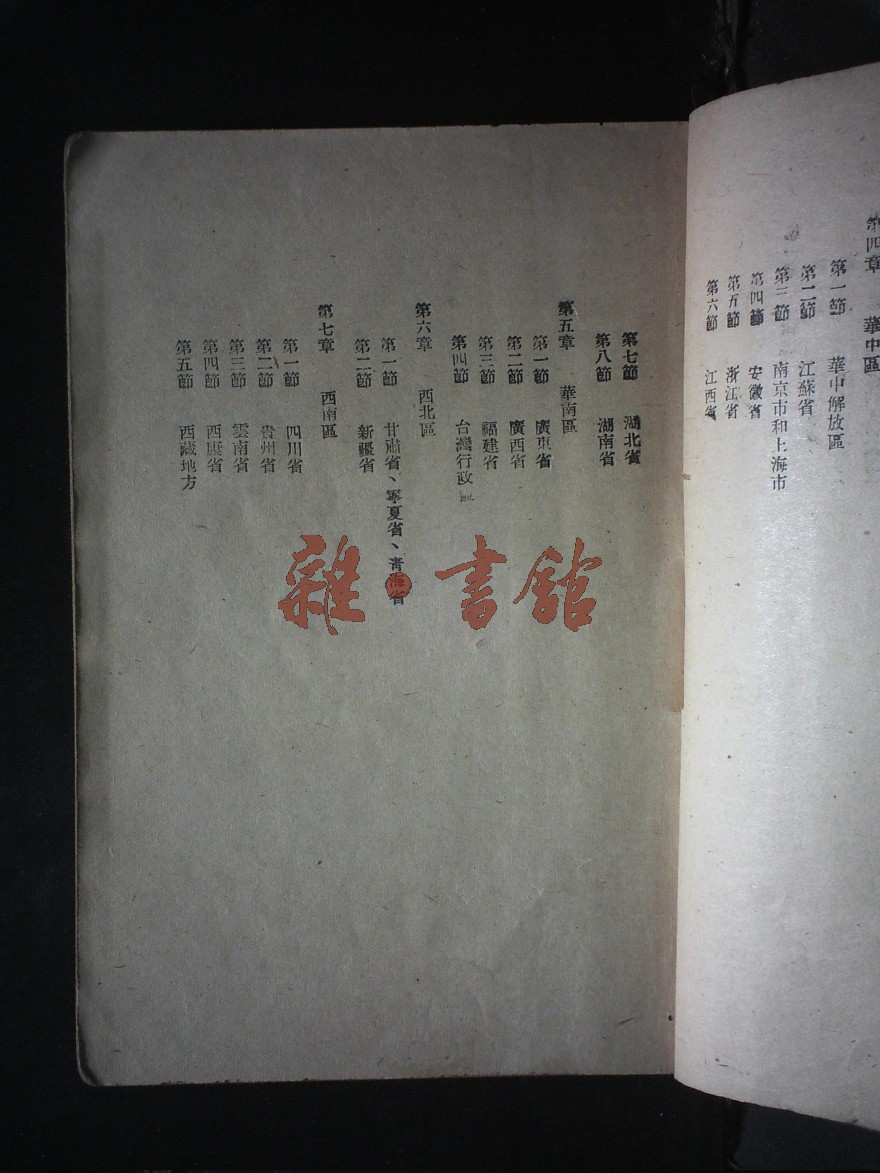 第四章 華中區
第一節 華中解放區
第二節 江蘇省
第三節 南京市和上海市
第四節 安徽省
第五節 浙江省
第六節 江西省
第七節 湖北省
第八節 湖南省
第五章 華南區
第一節 廣東省
第二節 廣西省
第三節 福建省
第四節 台灣行政區
第六章 西北區
第一節 甘肅省、寧夏省、青海省
第二節 新疆省
第七章 西南區
第一節 四川省
第二節 貴州省
第三節 雲南省
第四節 西康省
第五節 西藏地方
雜·書館